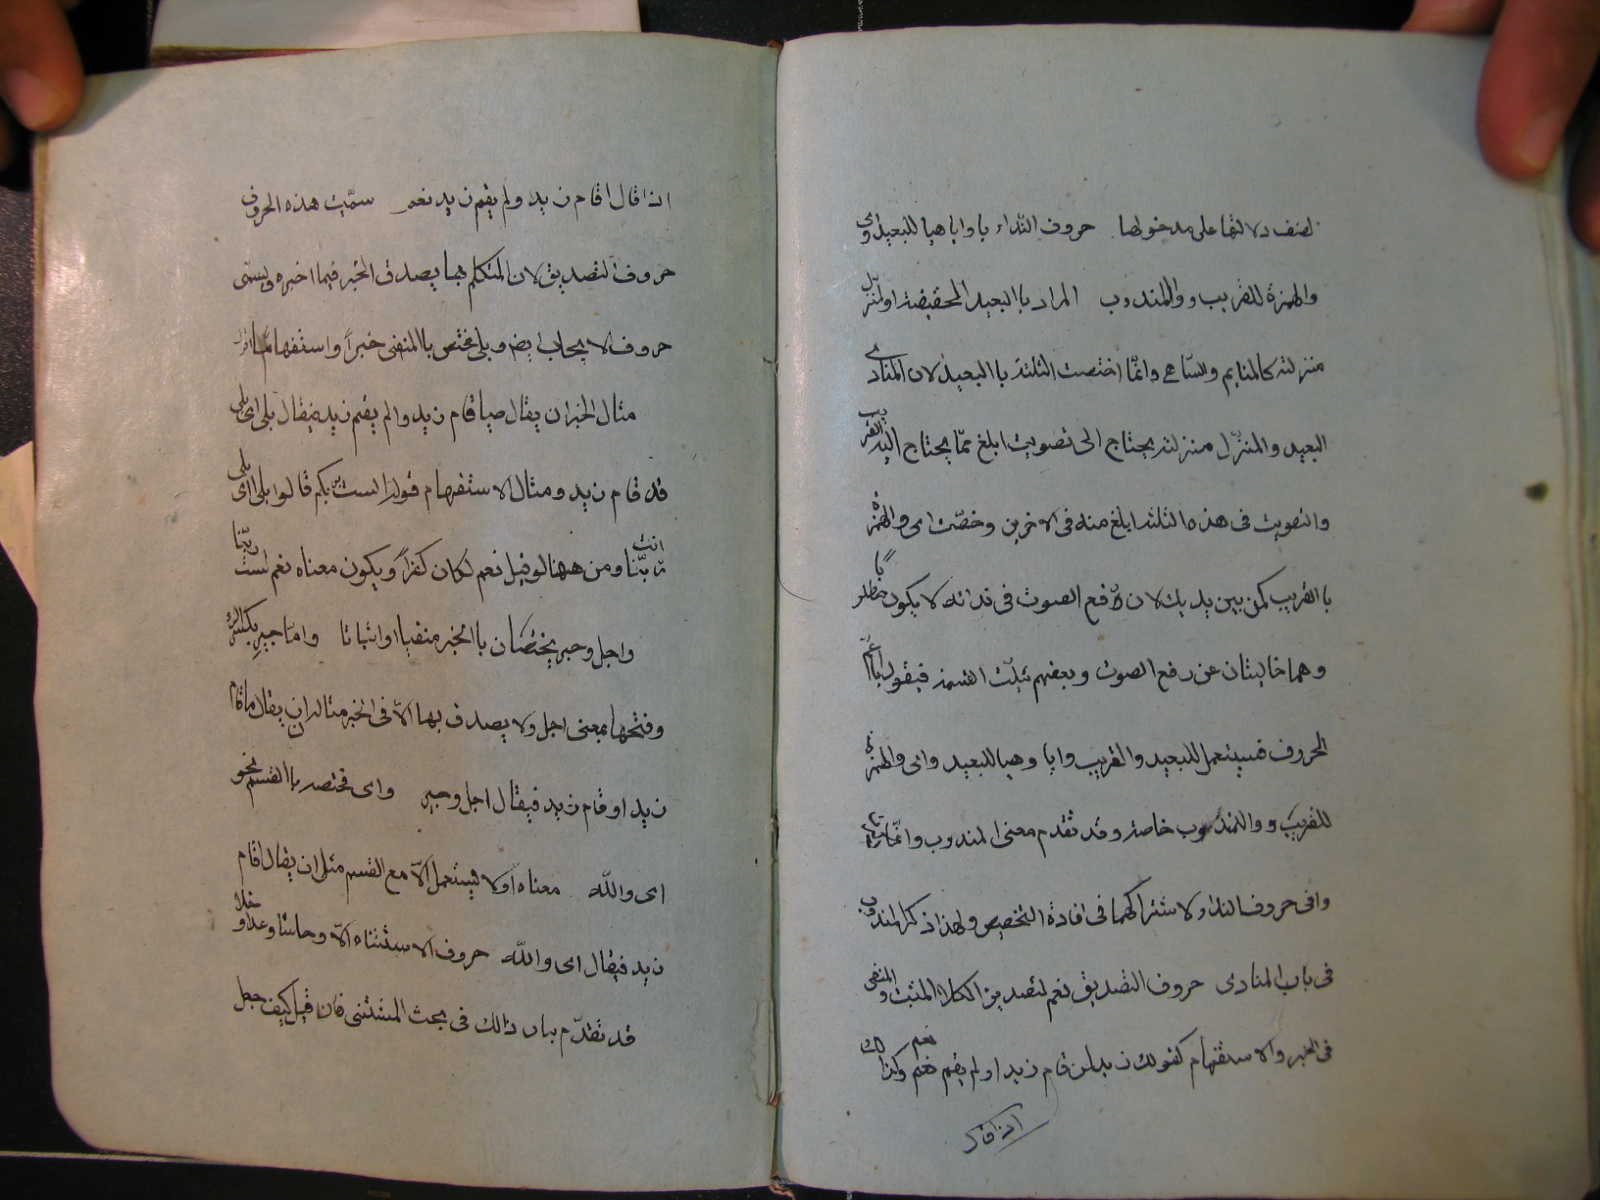 لضعف دلالتها على مدخولها حروف النداء يا وايا وهيا للبعيد واى
والهمزة للقريب ووا للمندوب المراد باالبعيد الحقيقة او المنزل
منزلته كالنايم والساهى وانّما اختصت الثلثة باالبعيد لان المنادى
البعيد والمنزّل منزلته يحتاج الى تصويت ابلغ ممّا يحتاج اليه القريب
والتصويت فى هذه الثلثة ابلغ منه فى الاخرين وخصّت اى والهمزة
باالقريب كمن بين يديك لان رفع الصوت فى ندائه لا يكون
وهما خاليتان عن رفع الصوت وبعضهم يثلّث القسمة فيقول يا اعمّ
الحروف فيستعمل للبعيد والقريب وايا وهيا للبعيد واى والهمزة
للقريب ووا للمندوب خاصة وقد تقدم معنى المندوب وانّما
وا فى حروف النداء لاشتراكهما فى افادة التخصيص ولهذا ذكر المندوب
فى باب المنادى حروف التصديق نعم لتصديق الكلام المثبت والمنفى
فى الخبر والاستفهام كقولك نعم لمن قام زيد او لم يقم نعم وكذلك
اذا قال
اذا قال اقام زيد ولم يقم زيد نعم سمّيت هذه الحروف
حروف التصديق لان المتكلم بها يصدق الخبر فيما اخبره ويسمّى
حروف الايجاب ايضا وبلى مختص باالمنفى خبراً واستفهاماً
مثال الخبر ان يقال ما قام زيد والم يقم زيد فيقال بلى اى بلى
قد قام زيد ومثال الاستفهام قوله الست بربكم قالوا بلى اى بلى
انت ربّنا ومن ههنا لو قيل نعم لكان كفراً ويكون معناه نعم لست ربّنا
واجل وجير يختصّان باالخبر منفيا او اثباتا وامّا جير بكسر الراء
وفتحها بمعنى اجل ولا يصدق بها الاّ فى الخبر مثاله ان يقال ما قام
زيد او قام زيد فيقال اجل وجير واى مختصة باالقسم نحو
اى والله معناه اولا يستعمل الاّ مع القسم مثل ان يقال اقام
زيد فيقال اى والله حروف الاستثناء الاّ وحاشا وعدا وخلا
قد تقدّم بيان ذالك فى بحث المستثنى فان قيل كيف جعل